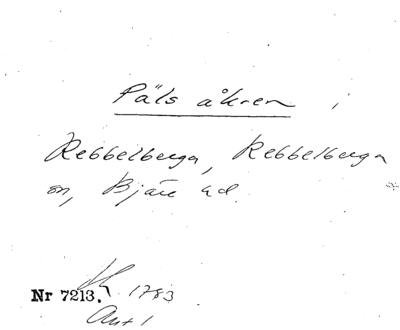 Påls åkern i
Rebbelberga, Rebbelberga
sn, Bjäre hd.
Nr 7213. 1783
Akt 1